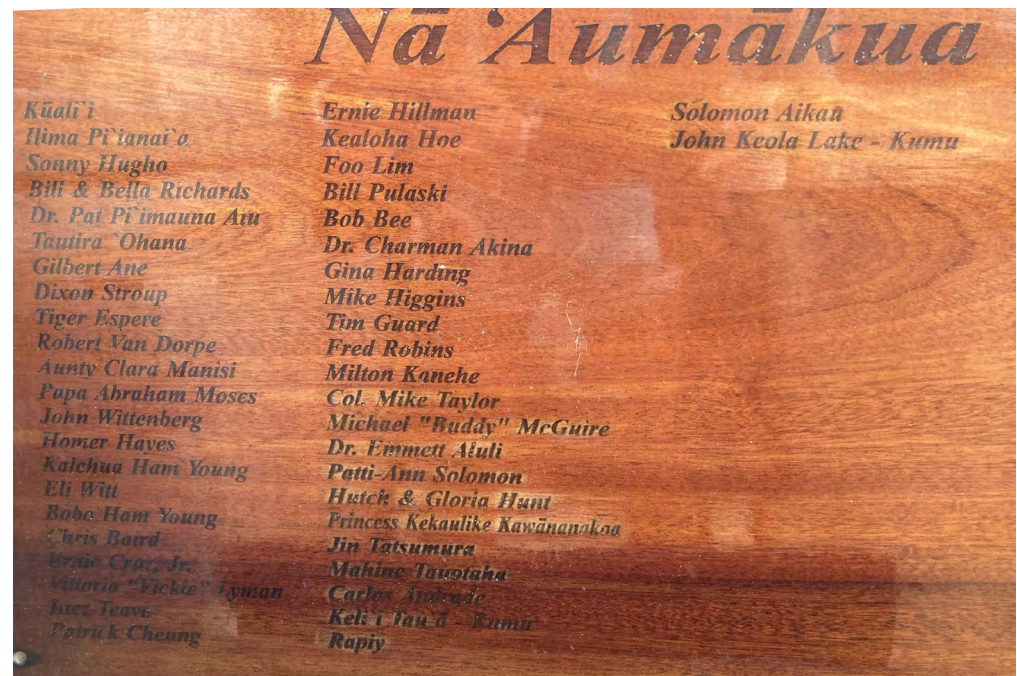 Nā ‘Aumākua
Kūali`i
Ilima Pi`ianai`a
Sonny Hugho
Bill & Bella Richards
Dr. Pat Pi`imauna Aiu
Tautira `Ohana
Gilbert Ane
Dixon Stroup
Tiger Espere
Robert Van Dorpe
Aunty Clara Manisi
Papa Abraham Moses
John Wittenberg
Homer Hayes
Kalehua Ham Young
Eli Witt
Bobo Ham Young
Chris Baird
Ernie Cruz, Jr.
Vittoria "Vickie" Lyman
Inez Teave
Patrick Cheung
Ernie Hillman
Kealoha Hoe
Foo Lim
Bill Pulaski
Bob Bee
Dr. Charman Akina
Gina Harding
Mike Higgins
Tim Guard
Fred Robins
Milton Kanehe
Col. Mike Taylor
Michael "Buddy" McGuire
Dr. Emmett Aluli
Patti-Ann Solomon
Hutch & Gloria Hunt
Princess Kekaulike Kawānanakoa
Jin Tatsumura
Mahine Tauotaha
Carlos Andrade
Keli`i Tau`ā - Kumu
Rapiy
Solomon Aikau
John Keola Lake - Kumu